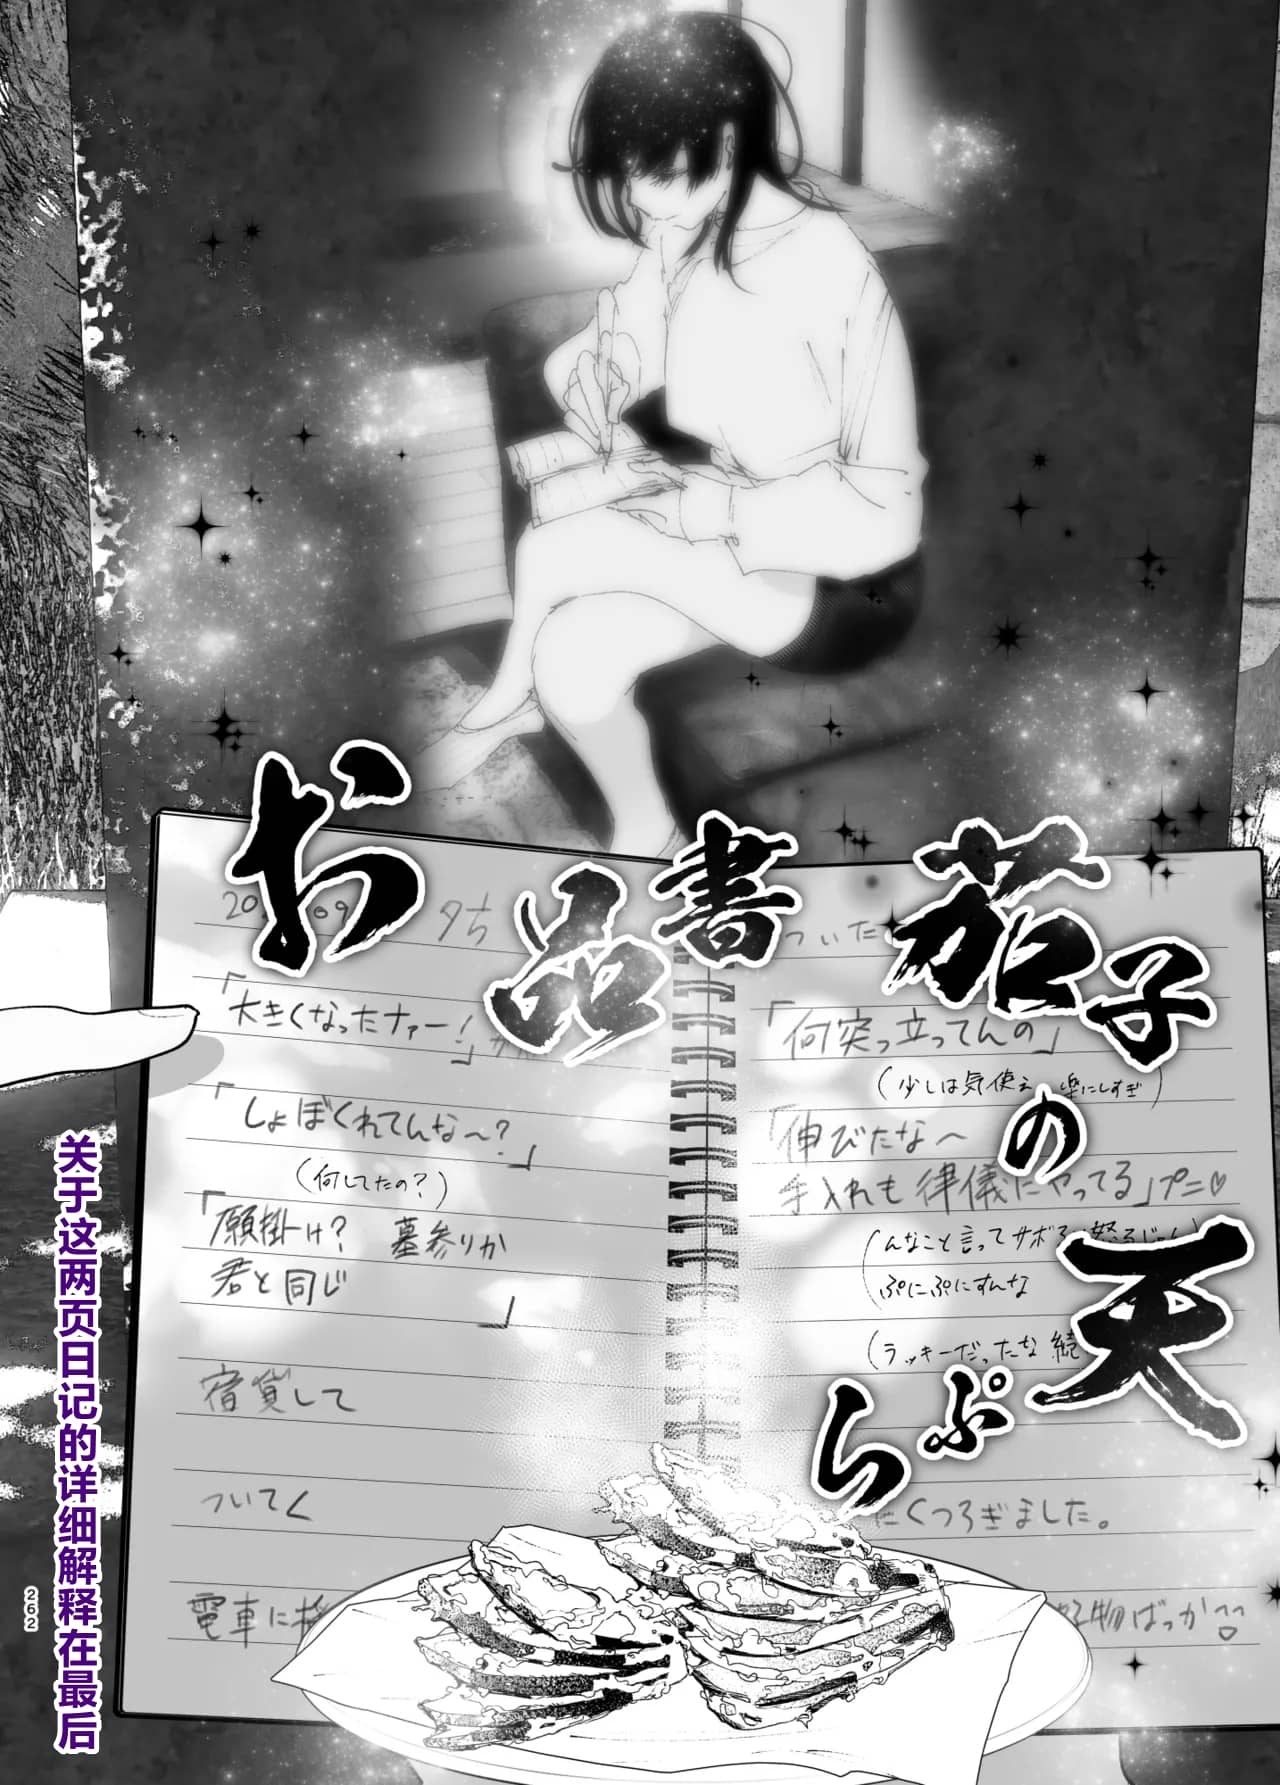 お品書
茄子の天ぷら
夕方
「大きくなったナァー！」
「しょぼくれてんな〜？」
（何してたの？）
「願掛け？　墓参りか
君と同じ　」
宿貸して
ついてく
電車に
ついた
「何突っ立ってんの」
（少しは気使え　楽にしすぎ）
「伸びたな〜
手入れも律儀にやってる」プニ♡
（んなこと言ってサボ
ぷにぷにすんな
（ラッキーだったな 続
にくつろぎました。
好物ばっか
关于这两页日记的详细解释在最后
262